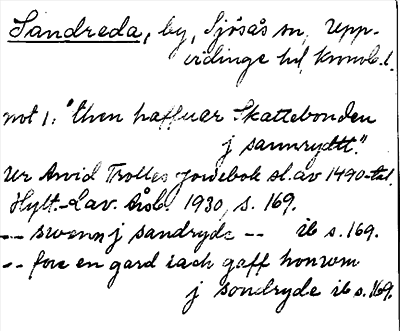 Sandreda, by, Sjösås sn, Upp-
vidinge hd, Kronob. l.
not 1: "then haffuer Skattebonden
j sannrydtt."
Ur Arvid Trolles Jordebok sl. av 1490-tal.
Hylt.-Cav. Årsb. 1930, s. 169.
-- swenn j sandryde -- ib s. 169.
-- fore en gard iach gaff honum
j sondryde ib s. 169.